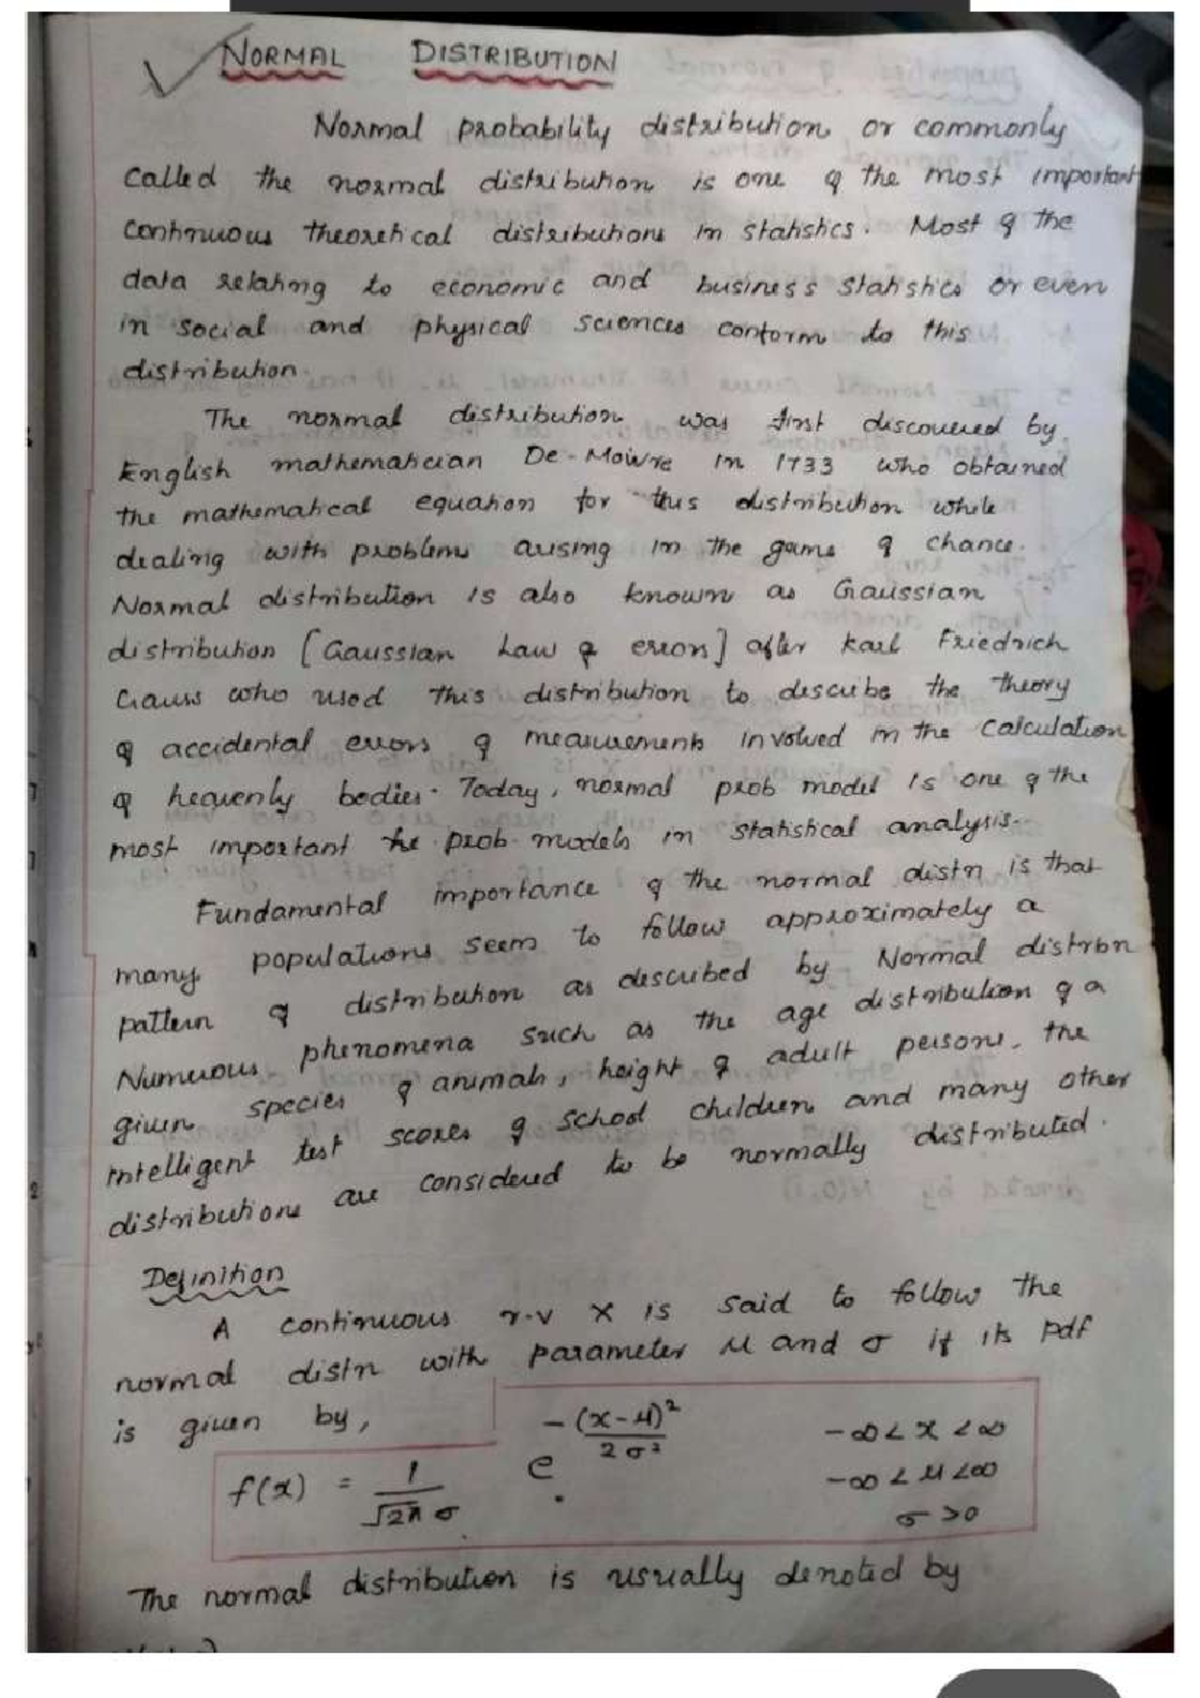 NORMAL DISTRIBUTION
Normal probability distribution or commonly
called the normal distribution is one of the most important
continuous theoretical distributions in statistics. Most of the
data relating to economic and business statistics or even
in social and physical sciences conform to this
distribution.
The normal distribution was first discovered by
English mathematician De-Moivre in 1733 who obtained
the mathematical equation for this distribution while
dealing with problems arising in the game of chance.
Normal distribution is also known as Gaussian
distribution [Gaussian Law of errors] after Karl Friedrich
Gauss who used this distribution to describe the theory
of accidental errors of measurements involved in the calculation
of heavenly bodies. Today, normal prob model is one of the
most important the prob. models in statistical analysis.
Fundamental importance of the normal distn is that
many populations seem to follow approximately a
pattern of distribution as described by Normal distrbn
Numerous phenomena such as the age distribution of a
given species of animals, height of adult persons, the
intelligent test scores of school children and many other
distributions are considered to be normally distributed.
Definition
A continuous r.v X is said to follow the
normal distn with parameter μ and σ if its pdf
is given by,
f(x) = 1/√2π σ e^-(x-μ)²/2σ² -∞ < x < ∞
-∞ < μ < ∞
σ > 0
The normal distribution is usually denoted by